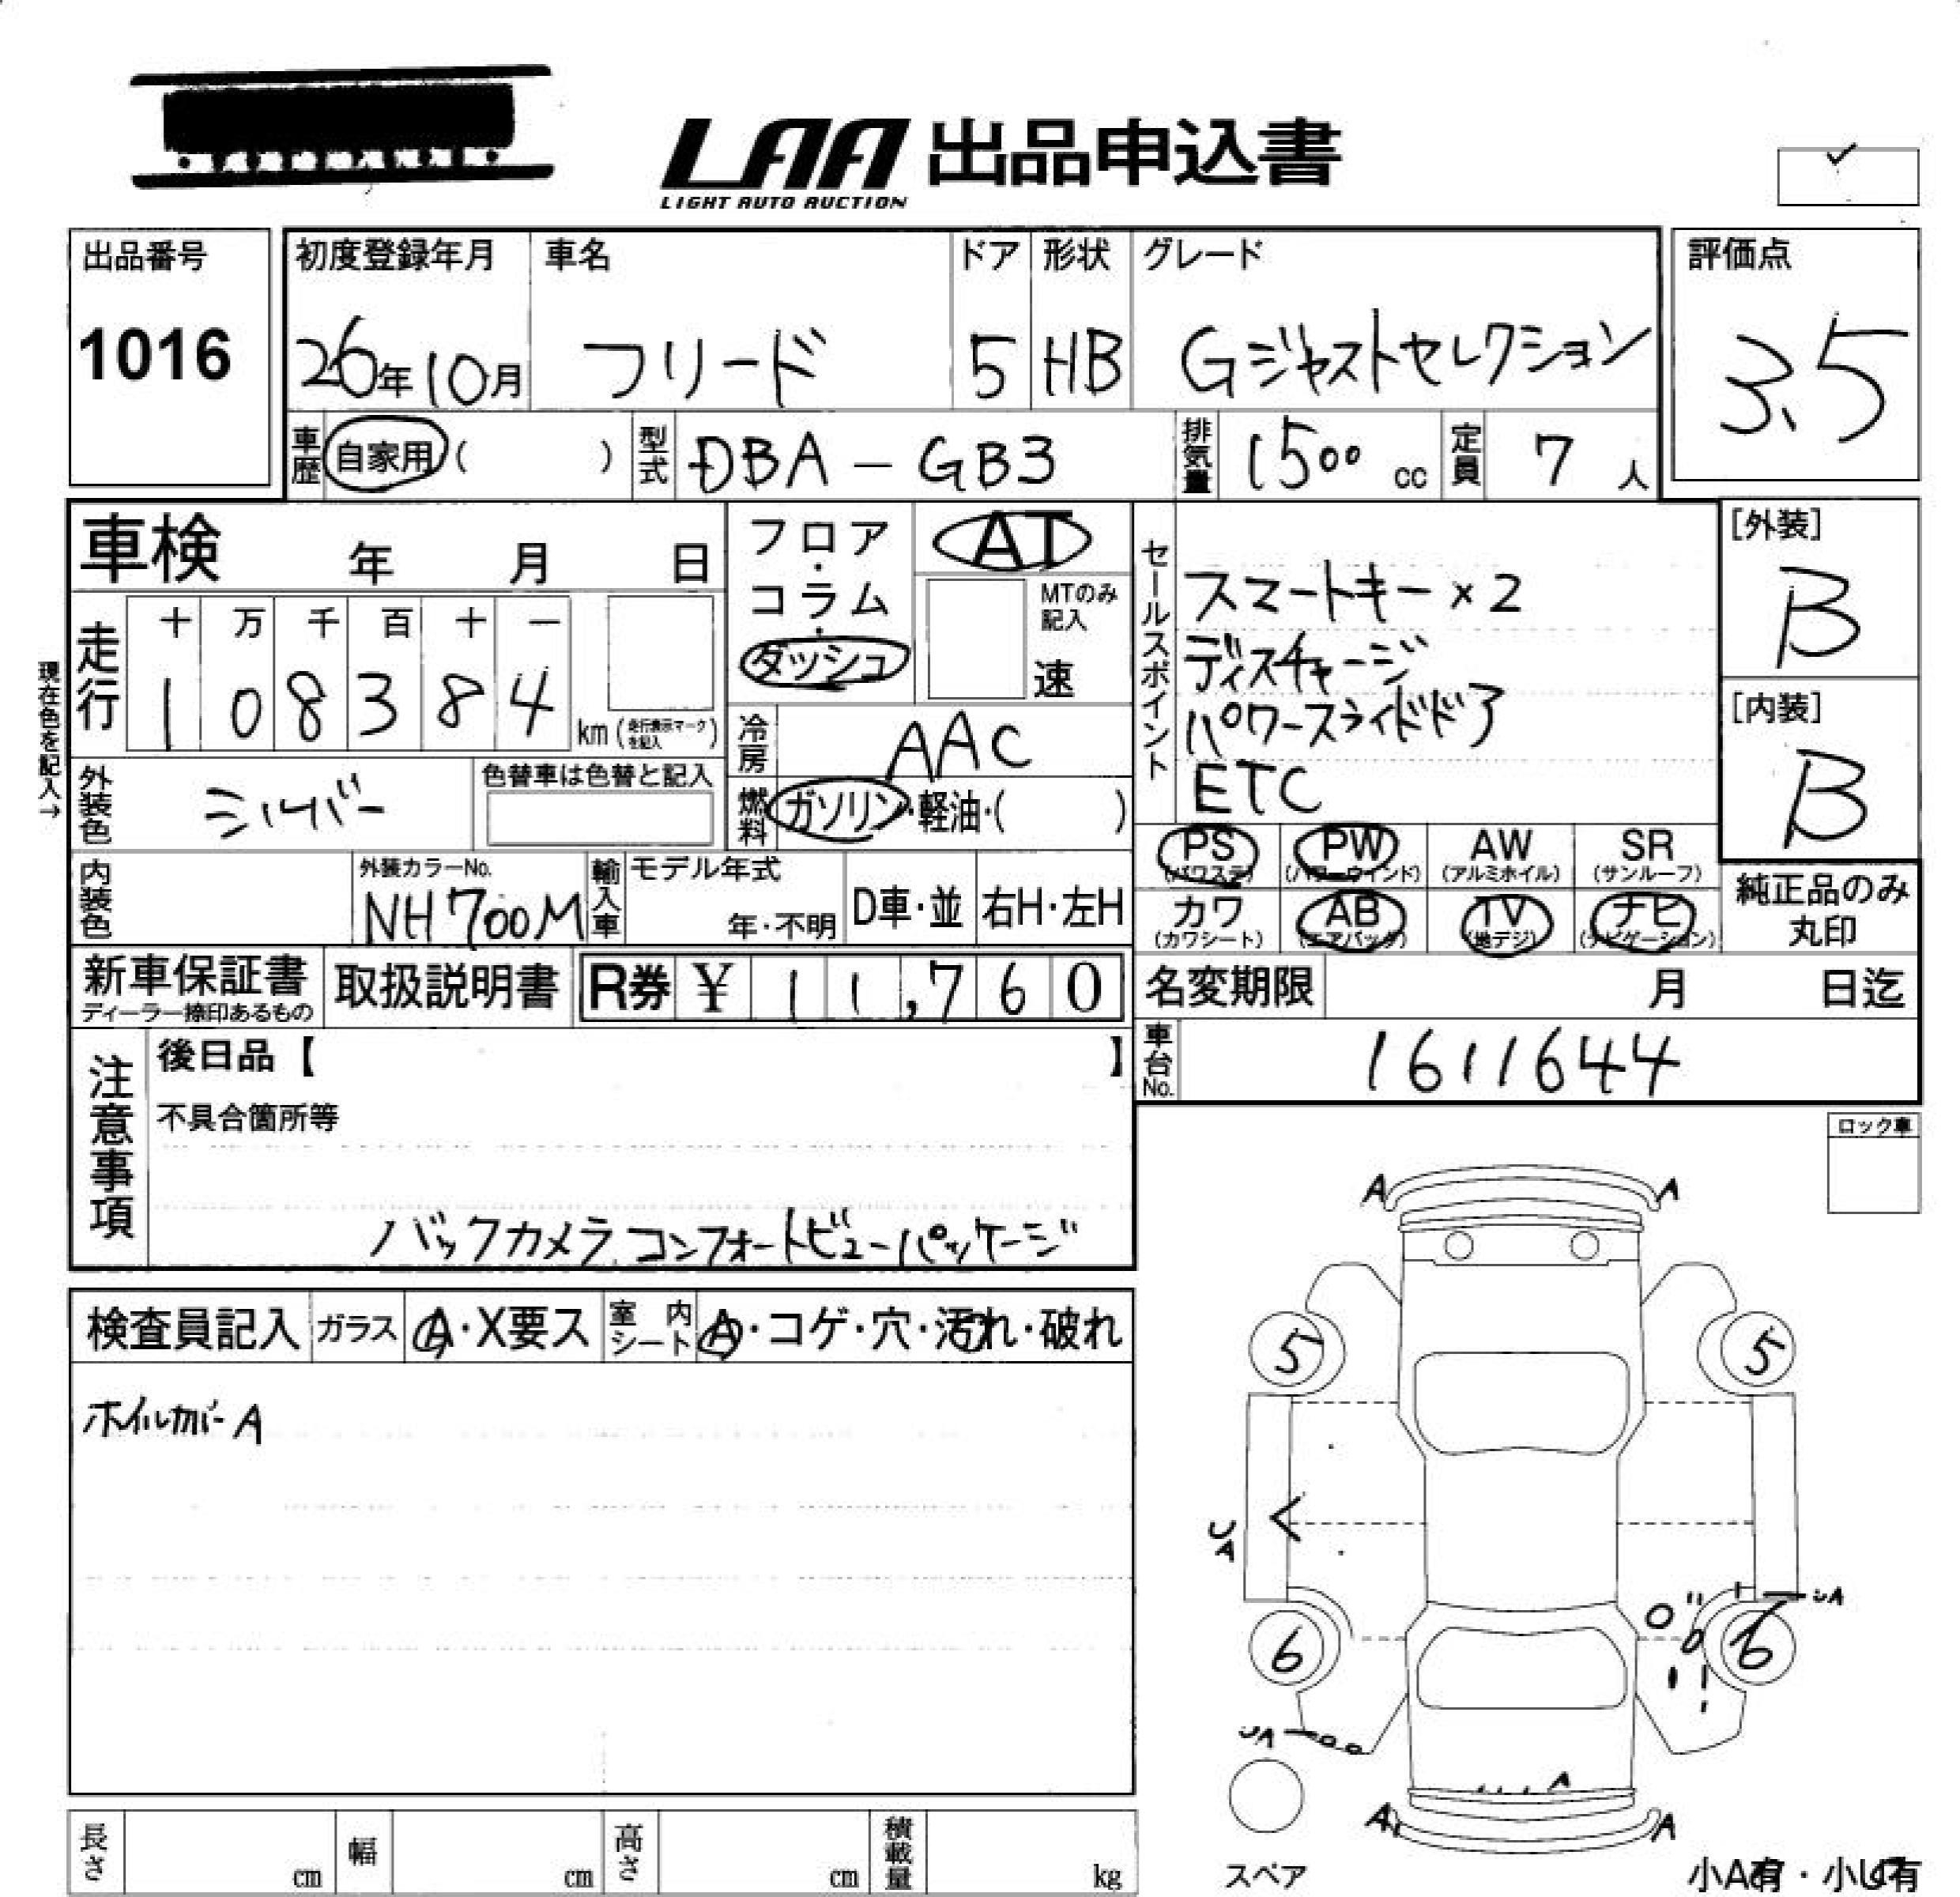 LAA 出品申込書
LIGHT AUTO AUCTION
出品番号
1016
初度登録年月 車名 ドア 形状 グレード
26年10月 フリード 5 HB Gジャストセレクション
評価点
3.5
車歴 自家用 ( ) 型式 DBA-GB3 排気量 1500 cc 定員 7 人
車検 年 月 日
フロア・コラム・ダッシュ
AT
MTのみ記入
速
走行 十 万 千 百 十 一
1 0 8 3 8 4 km (走行表示マークを記入)
現在色を記入→
冷房 AAC
外装色 シルバー 色替車は色替と記入
燃料 ガソリン・軽油・( )
セールスポイント
スマートキー×2
ディスチャージ
パワースライドドア
ETC
[外装]
B
[内装]
B
PS (パワステ) PW (パワーウインド) AW (アルミホイル) SR (サンルーフ)
カワ (カワシート) AB (エアバッグ) TV (地デジ) ナビ (ナビゲーション)
純正品のみ
丸印
内装色 外装カラーNo. NH700M 輸入車 モデル年式 年・不明 D車・並 右H・左H
新車保証書 ディーラー捺印あるもの 取扱説明書 R券 ¥ 11,760
名変期限 月 日迄
車台No. 1611644
注意事項
後日品【 】
不具合箇所等
バックカメラ.コンフォートビューパッケージ
ロック車
検査員記入 ガラス A・X要ス 室内シート A・コゲ・穴・汚れ・破れ
ホイルカバーA
A A
5 5
UA
UA
6 6
UA
A
A A
スペア
小A有・小U有
長さ cm 幅 cm 高さ cm 積載量 kg